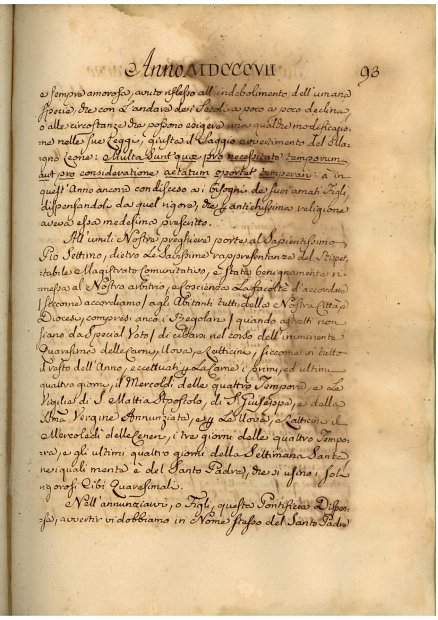 Anno MDCCCVII 93
e sempre amorosa, avuto riflesso all'indebolimento dell'umana
specie, che con l'andare de' Secoli a poco a poco declina,
o alle circostanze che possono esigere una qualche modificazio-
ne nelle sue Leggi, giusta il saggio avvertimento del Ma-
gno Leone: Multa sunt quæ pro necessitate temporum
aut pro consideratione ætatum oportet temperari: à in
quest'Anno ancora condisceso a i bisogni de' suoi amati Figli,
dispensandoli da quel rigore, che antichissima religione
aveva essa medesima prescritto.
All'umili Nostre preghiere porte al Sapientissimo
Pio Settimo, dietro Le Saissime rappresentanze del Rispet-
tabile Magistrato Comunitativo, è stata benignamente ri-
messa al Nostro arbitrio, e coscienza La facoltà d'accordare
/ siccome accordiamo / agli Abitanti tutti della Nostra Città, e
Diocesi, compresi anco i Regolari / quando astretti non
siano da special Voto / di cibarsi nel corso dell'imminente
Quaresima delle Carni, Uova, e Latticini, siccome in tutto
il resto dell'Anno, eccettuati La Carne i primi, ed ultimi
quattro giorni, il Mercoldì delle quattro Tempora, e Le
Vigilie di S. Mattia Apostolo, di S. Giuseppe, e della
Vergine Annunziata, e Le Uova, e Latticini il
Mercoledì delle Ceneri, i tre giorni delle quattro Tempo-
ra, e gli ultimi quattro giorni della Settimana Santa
nei quali mente è del Santo Padre, che si usino i soli
rigorosi Cibi Quaresimali.
Nell'annunziarvi, o Figli, questa Pontificia Dispen-
sa, avvertir vi dobbiamo in Nome stesso del Santo Padre